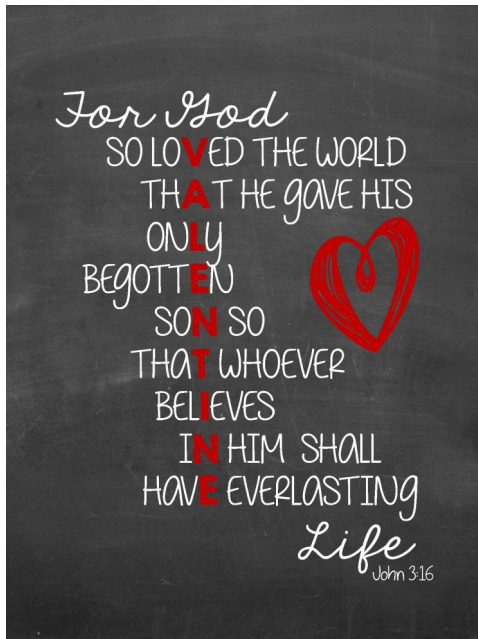 For God
SO LOVED THE WORLD
THAT HE GAVE HIS
ONLY
BEGOTTEN
SON SO
THAT WHOEVER
BELIEVES
IN HIM SHALL
HAVE EVERLASTING
Life
John 3:16